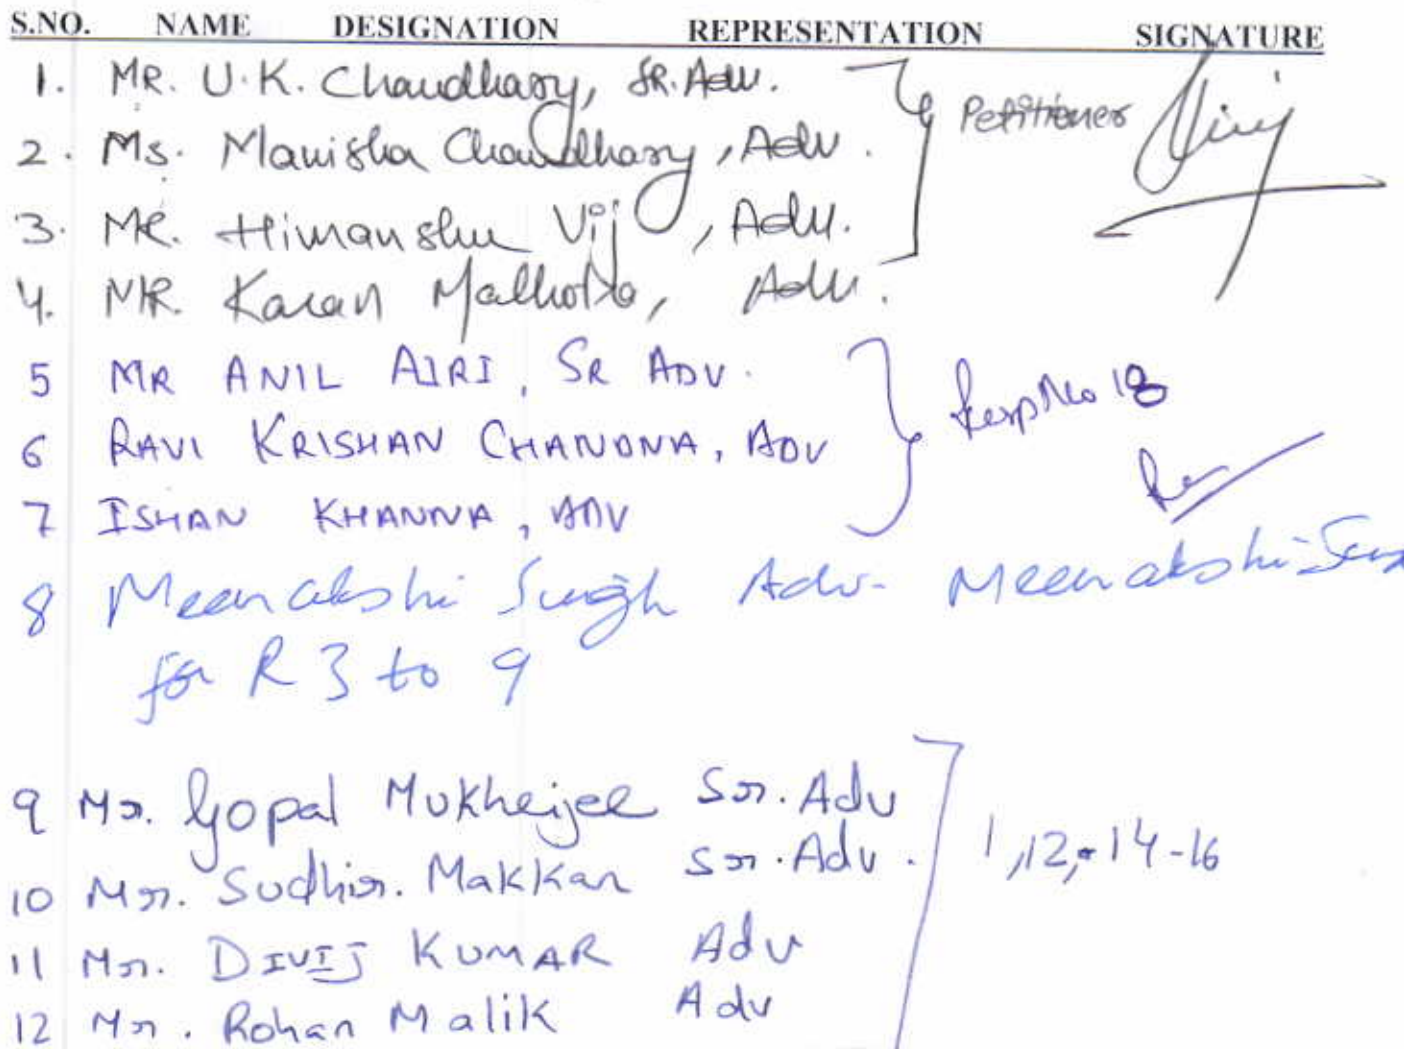 S.NO. NAME DESIGNATION REPRESENTATION SIGNATURE
1. MR. U.K. Chaudhary, SR. Adv. Petitioner
2. Ms. Manisha Chaudhary, Adv.
3. MR. Himanshu Vij, Adv.
4. MR. Karan Malhotra, Adv.
5 MR ANIL AIRI, SR ADV.
6 RAVI KRISHAN CHANDNA, ADV Resp No 18
7 ISHAN KHANNA, ADV
8 Meenakshi Singh Adv. Meenakshi
for R 3 to 9
9 Mr. Gopal Mukherjee Sr. Adv
10 Mr. Sudhir. Makkar Sr. Adv. 1,12,14-16
11 Mr. DIVIJ KUMAR Adv
12 Mr. Rohan Malik Adv